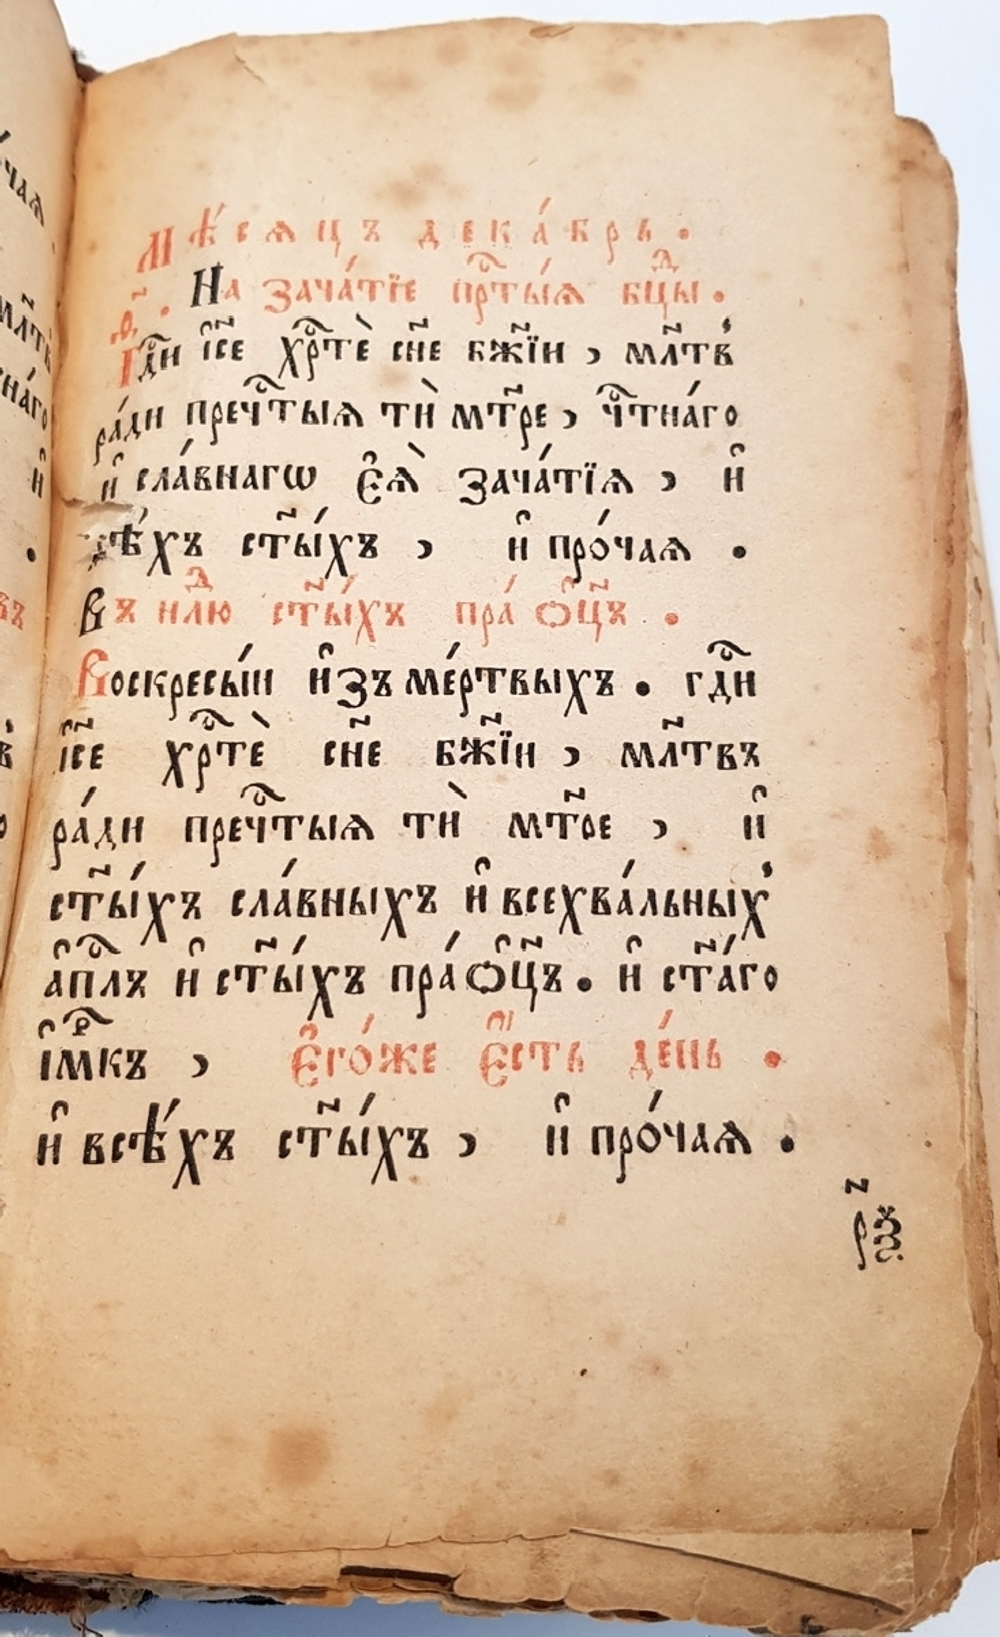 Мѣ́сяцъ дека́брь.
ѳ҃. На зача́тїе прⷭ҇ты́ѧ бцⷣы.
Гдⷭ҇и і҆с҃е хрⷭ҇тѐ сн҃е бж҃їи, мл҃твъ
ра́ди пречⷭ҇тыѧ тѝ мт҃ре, чⷭ҇тна́го
и҆ сла́внагѡ є҆ѧ̀ зача́тїѧ, и҆
всѣ́хъ ст҃ы́хъ, и҆ про́чаѧ.
Въ нлⷣю ст҃ы́хъ пра́ ѻ҆ц҃ъ.
Воскресы́и и҆зъ ме́ртвыхъ. гдⷭ҇и
і҆с҃е хрⷭ҇тѐ сн҃е бж҃їи, мл҃твъ
ра́ди пречⷭ҇тыѧ тѝ мт҃ре, и҆
ст҃ы́хъ сла́вныхъ и҆ всехва́льныхъ
а҆пⷭ҇лъ и҆ ст҃ы́хъ пра́ѻ҆ц҃ъ. и҆ ст҃а́го
і҆мⷬ҇къ, є҆го́же є҆́сть де́нь.
и҆ всѣ́хъ ст҃ы́хъ, и҆ про́чаѧ.